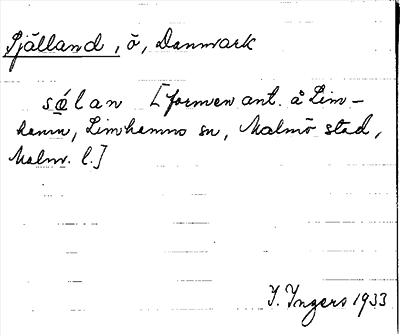 Själland, ö, Danmark
sǿlan [formen ant. å Lim-
hamn, Limhamns sn, Malmö stad,
Malm. l.]
I. Ingers 1933